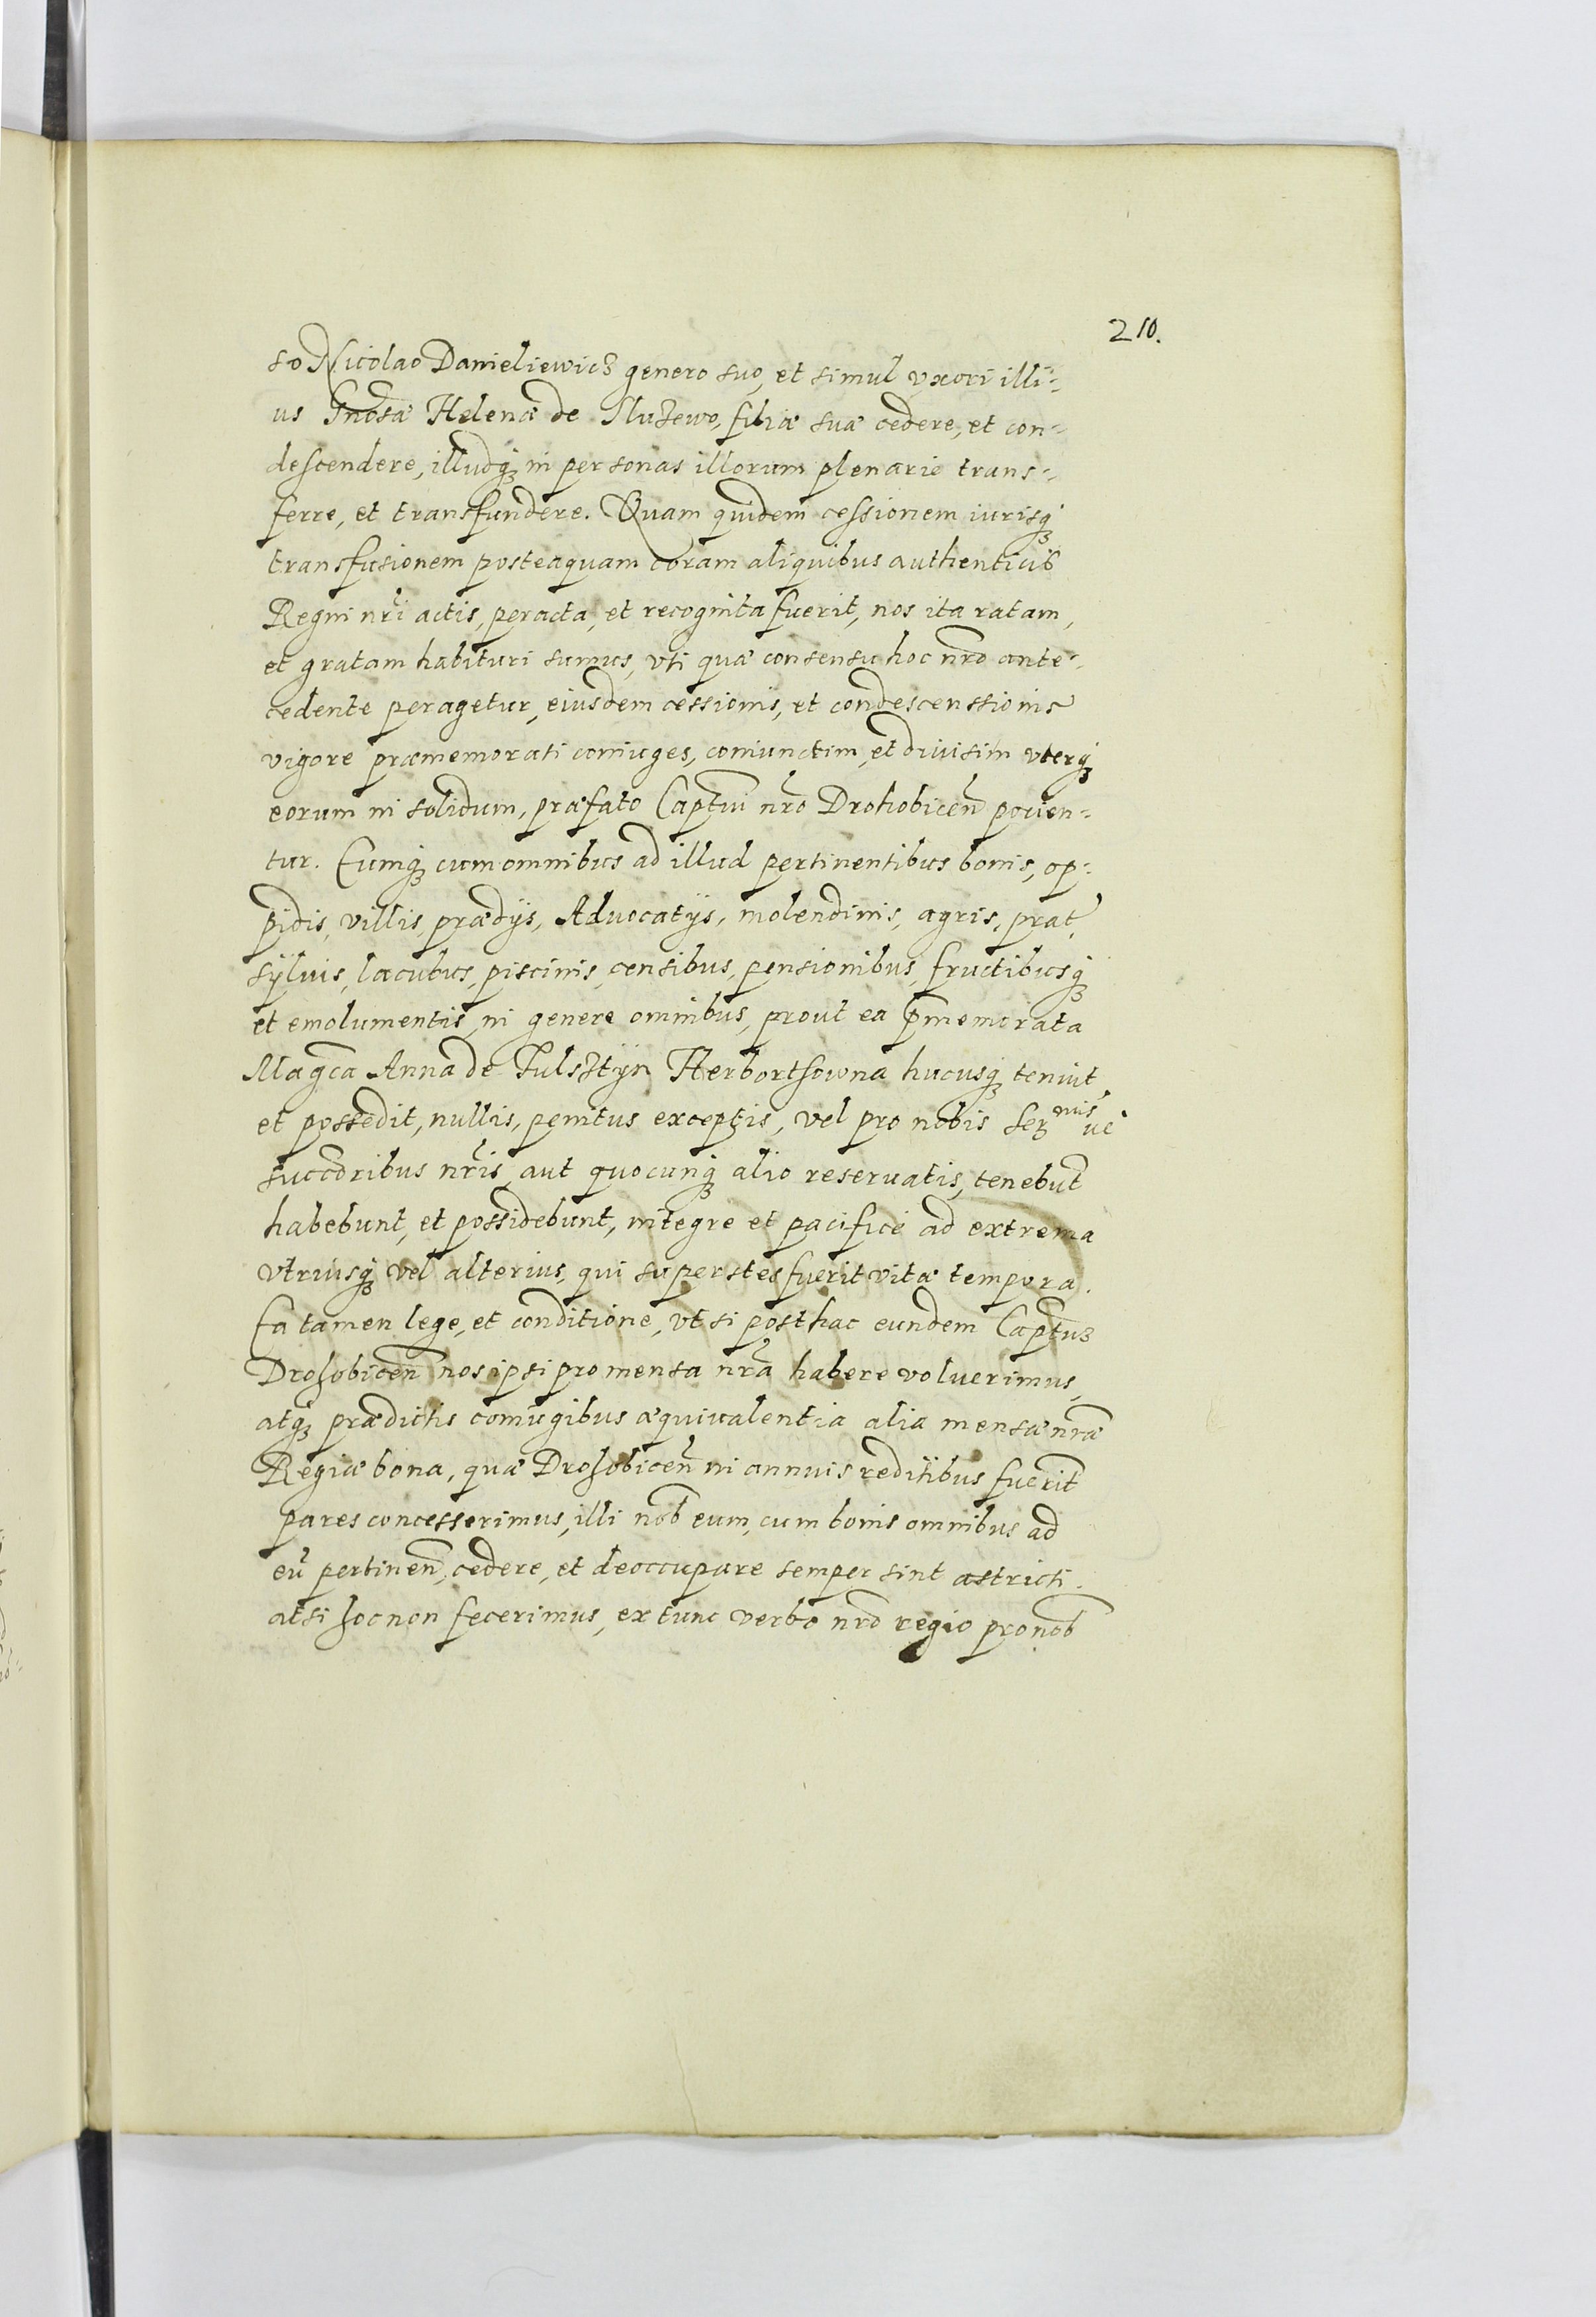 210.
so Nicolao Danieliewicz genero suo, et simul vxori illi-
us Gnosæ Helenæ de Sluzewo, filiæ suæ cedere, et con-
descendere, illudq3 in personas illorum plenarie trans-
ferre, et transfundere. Quam quidem cessionem iurisq3
transfusionem posteaquam coram aliquibus authenticis
Regni nri actis, peracta, et recognita fuerit, nos ita ratam,
et gratam habituri sumus, vti quæ consensu hoc nro ante-
cedente peragetur, eiusdem cessionis, et condescenssionis
vigore præmemorati coniuges, coniunctim, et diuisim vterq3
eorum in solidum, præfato Captui nro Drohobicen pocien-
tur. Eumq3 cum omnibus ad illud pertinentibus bonis, op-
pidis, villis, prædijs, Aduocatijs, molendinis, agris, prat,
sÿluis, lacubus, piscinis, censibus, pensionibus, fructibusq3
et emolumentis, in genere omnibus, prout ea pmemorata
Magca Anna de Fulsztÿn Herbortsowna hucusq3 tenuit
et possedit, nullis, penitus exceptis, vel pro nobis Ser nis ué
succoribus nris, aut quocunq3 alio reseruatis, tenebut
habebunt, et possidebunt, integre et pacifice ad extrema
vtriusq3 vel alterius, qui superstes fuerit vitæ tempora.
Ea tamen lege, et conditione, vt si posthac eundem Captus
Drohobicen nos ipsi pro mensa nra habere voluerimus,
atq3 prædictis coniugibus æquiualentia alia mensæ nræ
Regiæ bona, quæ Drohobicen in annuis reditibus fuerit
pares concesserimus, illi nob eum, cum bonis omnibus ad
eu pertinen, cedere, et deoccupare semper sint astricti.
at si hoc non fecerimus, ex tunc verbo nro regio pro nob